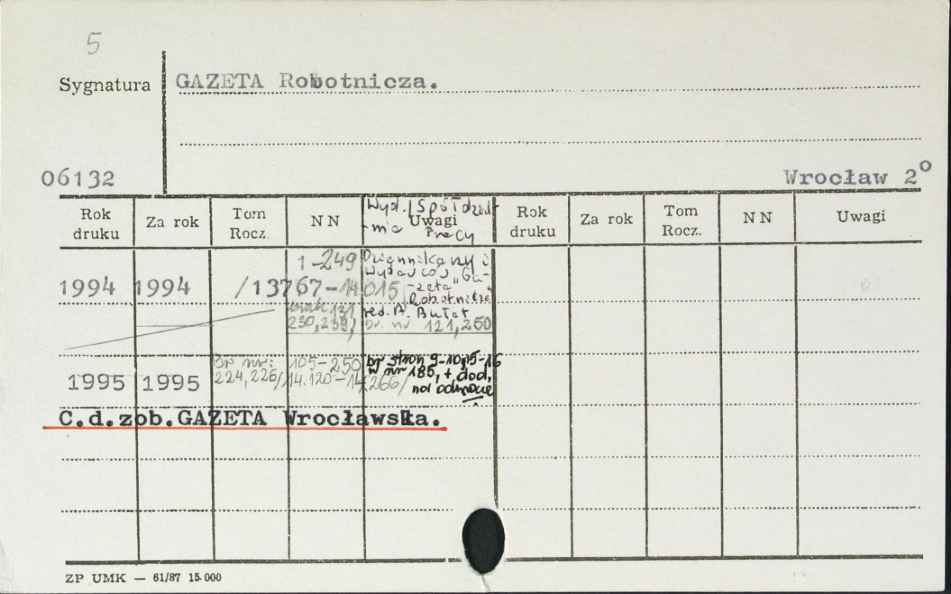 5
Sygnatura GAZETA Robotnicza.
06132 Wrocław 2°
Rok druku Za rok Tom Rocz. NN Uwagi Rok druku Za rok Tom Rocz. NN Uwagi
Wyd. Spółdziel-
-nia Pracy
1-249 Dziennikarzy i
Wydawców "Ga-
1994 1994 /13767-14015 -zeta
Robotnicza
brak 121 red. A. Bułat
230, 239, br. nr 121, 250
br nr: 105-250 br stron 9-10, 15-16
224, 226, w nr 185, + dod,
1995 1995 /14.120-14.266/
na odwrocie
C.d.zob.GAZETA Wrocławska.
ZP UMK — 61/87 15.000